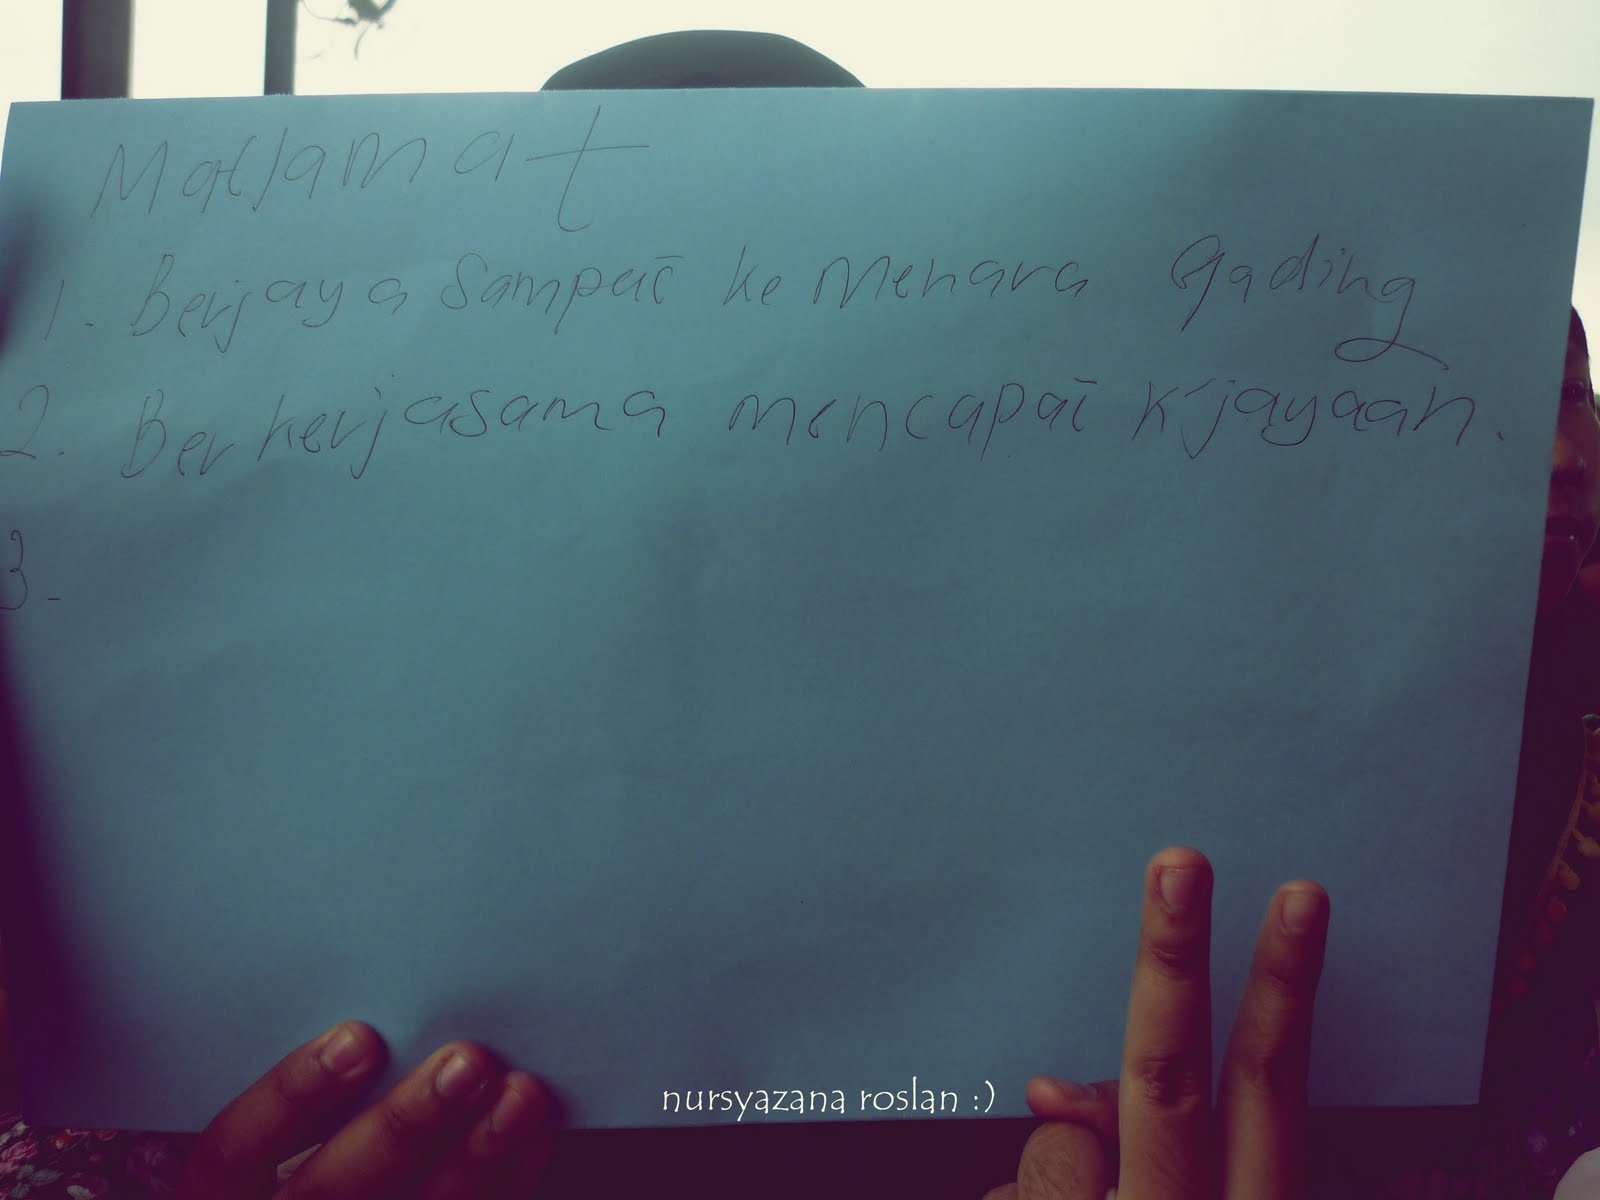 Matlamat
1. Berjaya sampai ke Menara Gading
2. Berkerjasama mencapai k'jayaan.
3-
nursyazana roslan :)